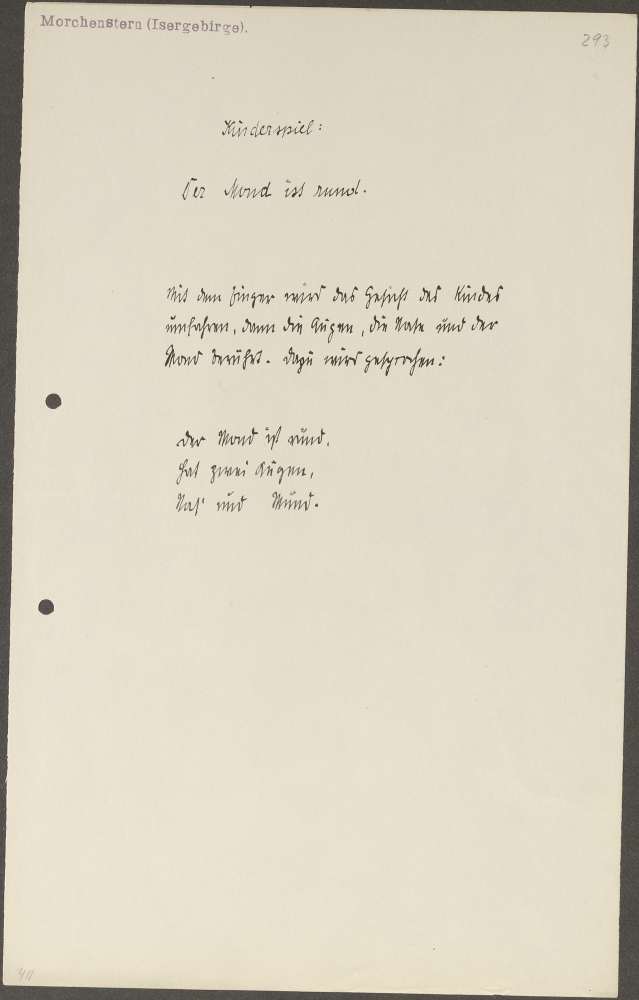 Morchenstern (Isergebirge).
293
Kinderspiel:
Der Mond ist rund.
Mit dem Finger wird das Gesicht des Kindes
umfahren, dann die Augen, die Nase und der
Mond berührt. Dazu wird gesprochen:
Der Mond ist rund,
hat zwei Augen,
Nas' und Mund.